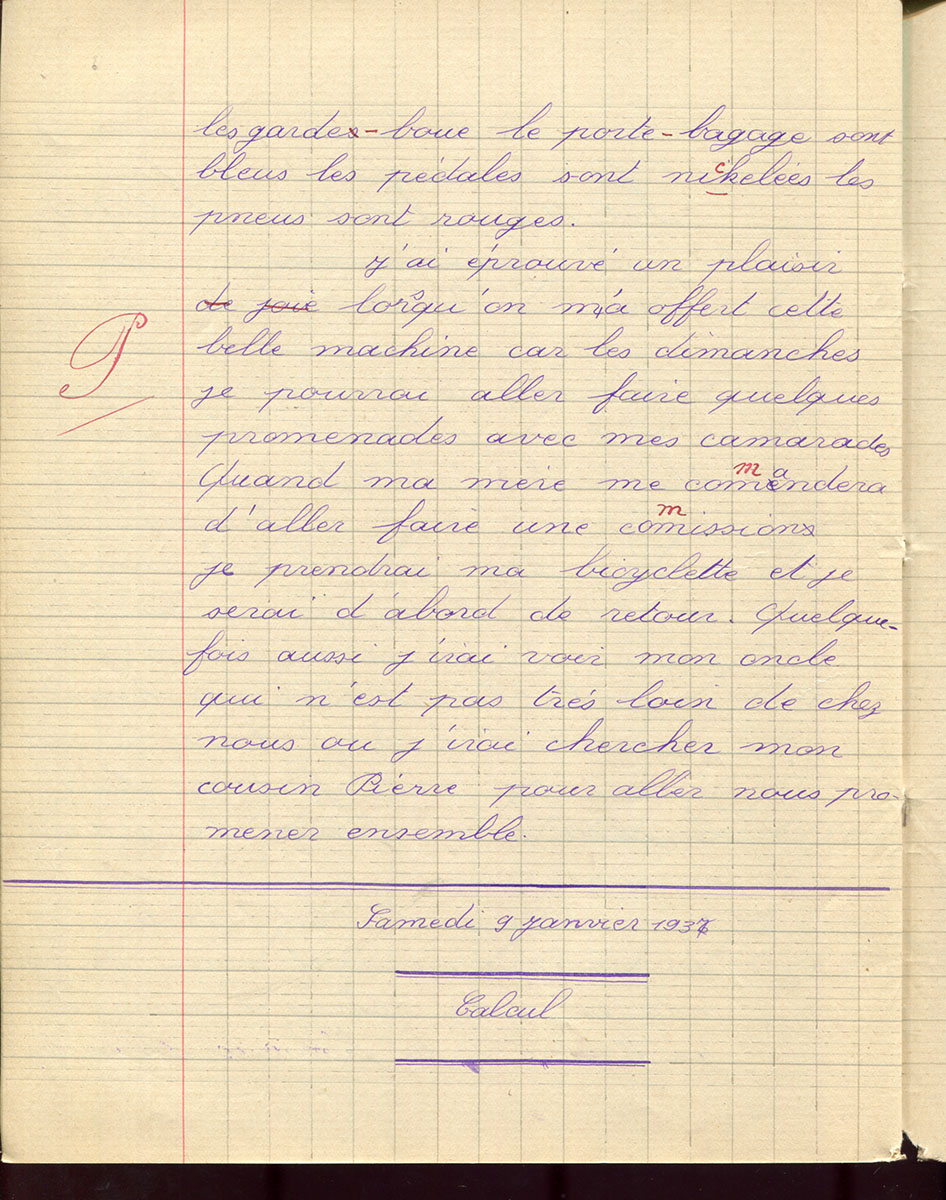 les gardes-boue le porte-bagage sont
bleus les pédales sont nickelées les
pneus sont rouges.
J'ai éprouvé un plaisir
de joie lorsqu'on m'a offert cette
belle machine car les dimanches
je pourrai aller faire quelques
promenades avec mes camarades
Quand ma mère me commandera
d'aller faire une commissions
je prendrai ma bicyclette et je
serai d'abord de retour. Quelque-
fois aussi j'irai voir mon oncle
qui n'est pas trés loin de chez
nous ou j'irai chercher mon
cousin Pierre pour aller nous pro-
mener ensemble.
P
Samedi 9 janvier 1937
Calcul